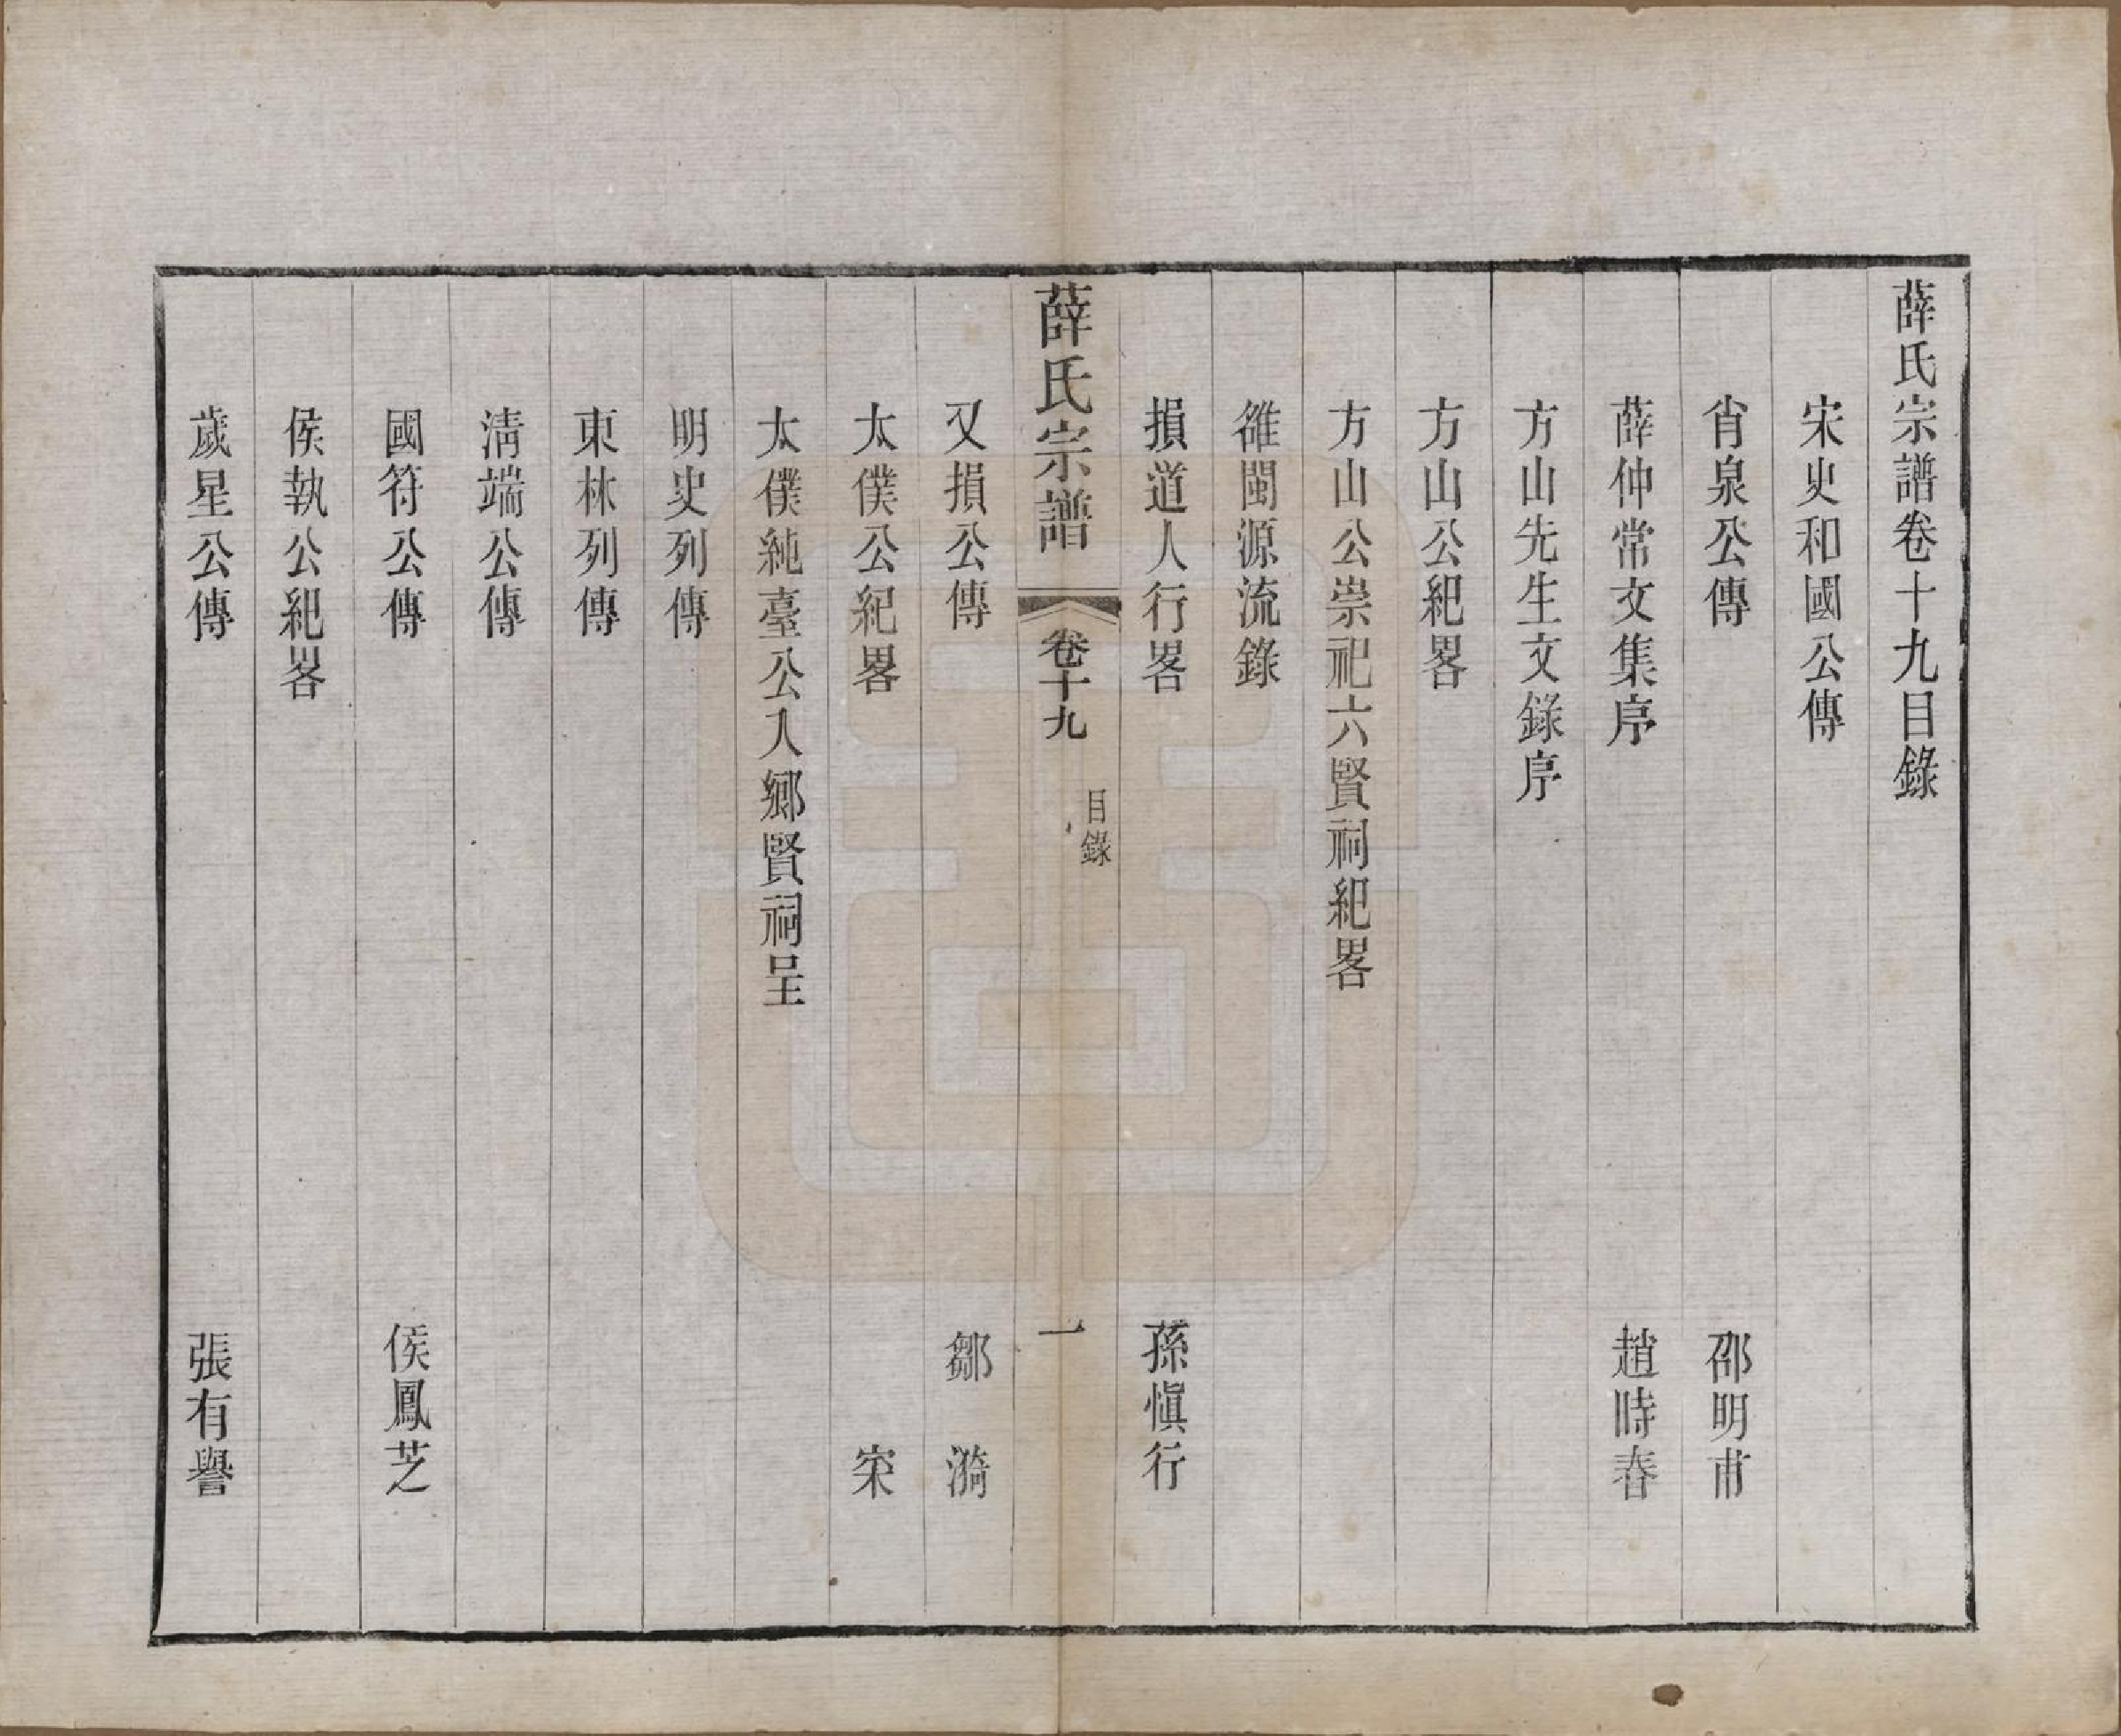 薛氏宗譜卷十九目錄
宋史和國公傳
肖泉公傳　邵明甫
薛仲常文集序　趙時春
方山先生文錄序
方山公紀畧
方山公崇祀六賢祠紀畧
雒閩源流錄
損道人行畧　孫愼行
薛氏宗譜　卷十九　目錄　一
又損公傳　鄒　漪
太僕公紀畧　寀
太僕純臺公入鄉賢祠呈
明史列傳
東林列傳
淸端公傳
國符公傳　侯鳳芝
侯執公紀畧
歲星公傳　張有譽